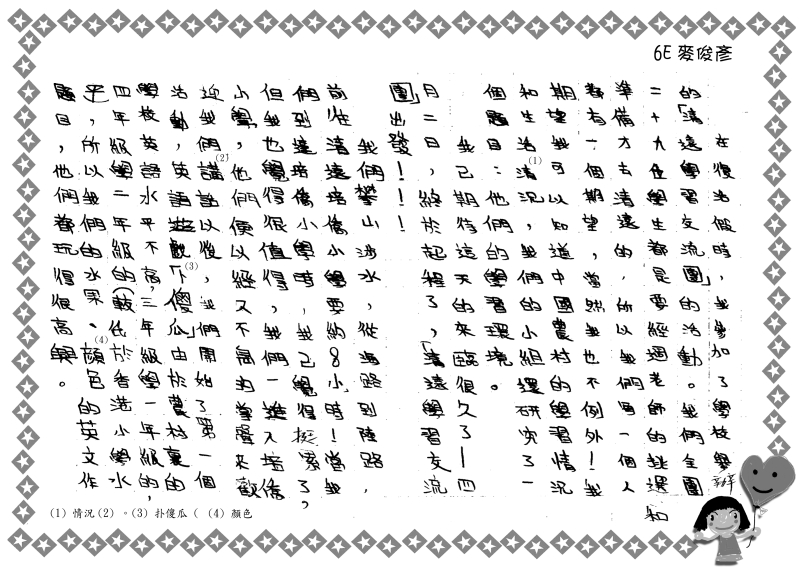 6E 麥俊彥
在復活假時，我參加了學校舉辦
的「清遠學習交流團」的活動。我們全團
二十九位學生都是要經過老師的挑選和
準備，才去清遠的，所以我們每一個人
都有一個期望，當然我也不例外！我
期望我可以知道中國農村的學習情況
和生活清況，我們的小組還研究了一
(1)
個題目：他們的學習環境。
我已期待這天的來臨很久了！四
月二日，終於起程了，「清遠學習交流
團」出發！！！
我們攀山涉水，從海路到陸路，
前往清遠培僑小學要約8小時！當我
們到達培僑小學時，我已覺得挺累了，
但我也覺得很值得，我們一進入培僑
小學，他們便以經又不高的掌聲來歡
迎我們講話以後，我們開始了第一個
(2)
活動，英語遊戲「下傻瓜」由於農村裏的
(3)
學校英語水平不高，三年級學一年級的，
四年級學二年級的(較低於香港小學水
平，所以我們的水果、顏色的英文作
(4)
題目，他們都玩得很高興。
(1) 情況(2) 。(3) 扑傻瓜 ( (4) 顏色